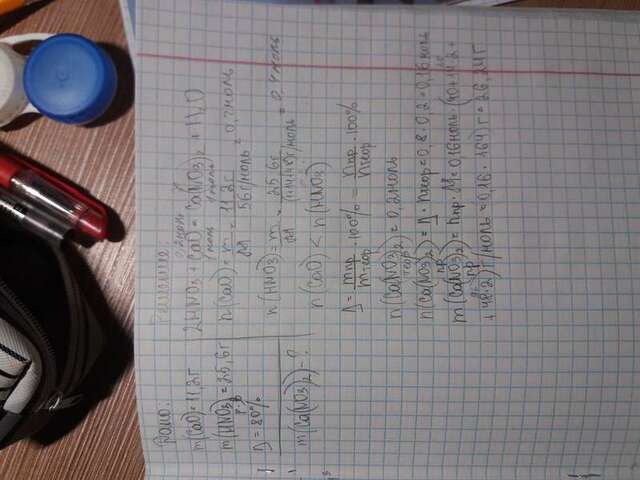 Дано:
m(CaO)=11,2г
m(HNO3)=25,6г
η=80%
m(Ca(NO3)2)-?
Решение:
0,2моль
2HNO3 + CaO = Ca(NO3)2 + H2O
1моль 1моль
n(CaO) = m/M = 11,2г/56г/моль = 0,2моль
n(HNO3) = m/M = 25,6г/моль = 0,4моль
n(CaO) < n(HNO3)
η = mпр/mтеор · 100% = nпр/nтеор · 100%
n(Ca(NO3)2)теор = 0,2моль
n(Ca(NO3)2)пр = η · nтеор = 0,8 · 0,2 = 0,16моль
m(Ca(NO3)2)пр = nпр · M = 0,16моль · (40+14·2+
= 0,16 · 164) г = 26,24г